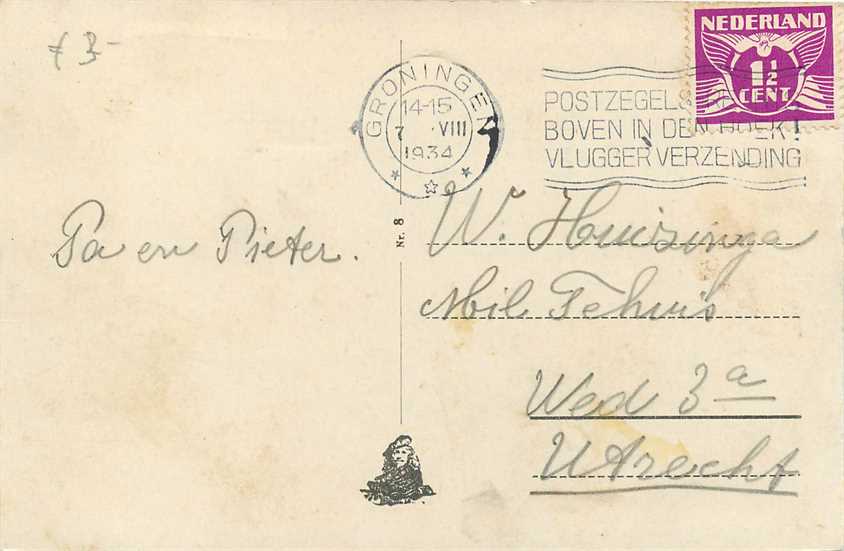 f 3-
NEDERLAND
1 1/2
CENT
GRONINGEN
14-15
7 VIII
1934
POSTZEGELS
BOVEN IN DEN HOEK!
VLUGGER VERZENDING
Nr. 8
Pa en Pieter.
W. Huizenga
Mil Tehuis
Wed 3a
Utrecht